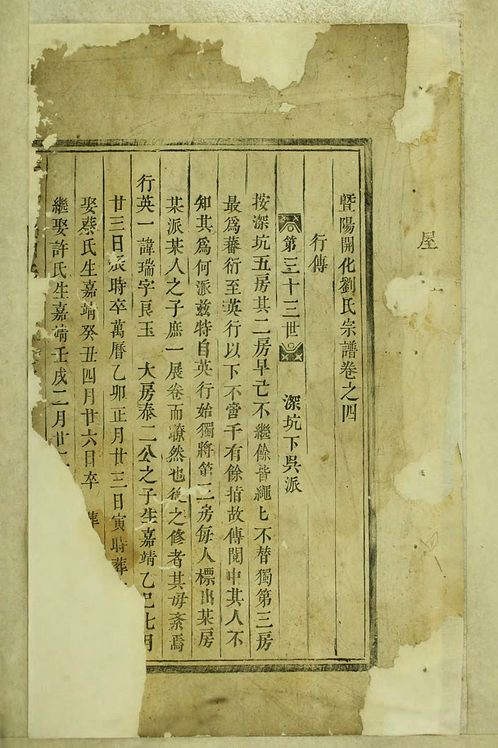 屋
暨陽開化劉氏宗譜卷之四
行傳
第三十三世 深坑下吳派
按深坑五房其二房早亡不繼餘皆繩匕不替獨第三房
最爲蕃衍至英行以下不啻千有餘指故傳閱中其人不
知其爲何派兹特自英行始獨將第三房每人標出某房
某派某人之子庶一展卷而瞭然也後之修者其毋紊焉
行英一諱瑞字良玉 大房泰二公之子生嘉靖乙巳七月
廿三日辰時卒萬曆乙卯正月廿三日寅時葬
娶蔡氏生嘉靖癸丑四月廿六日卒 葬
繼娶許氏生嘉靖壬戌二月廿